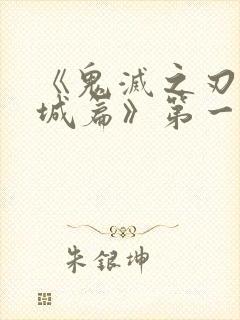 《鬼滅之刃
城篇》第一
朱銀坤